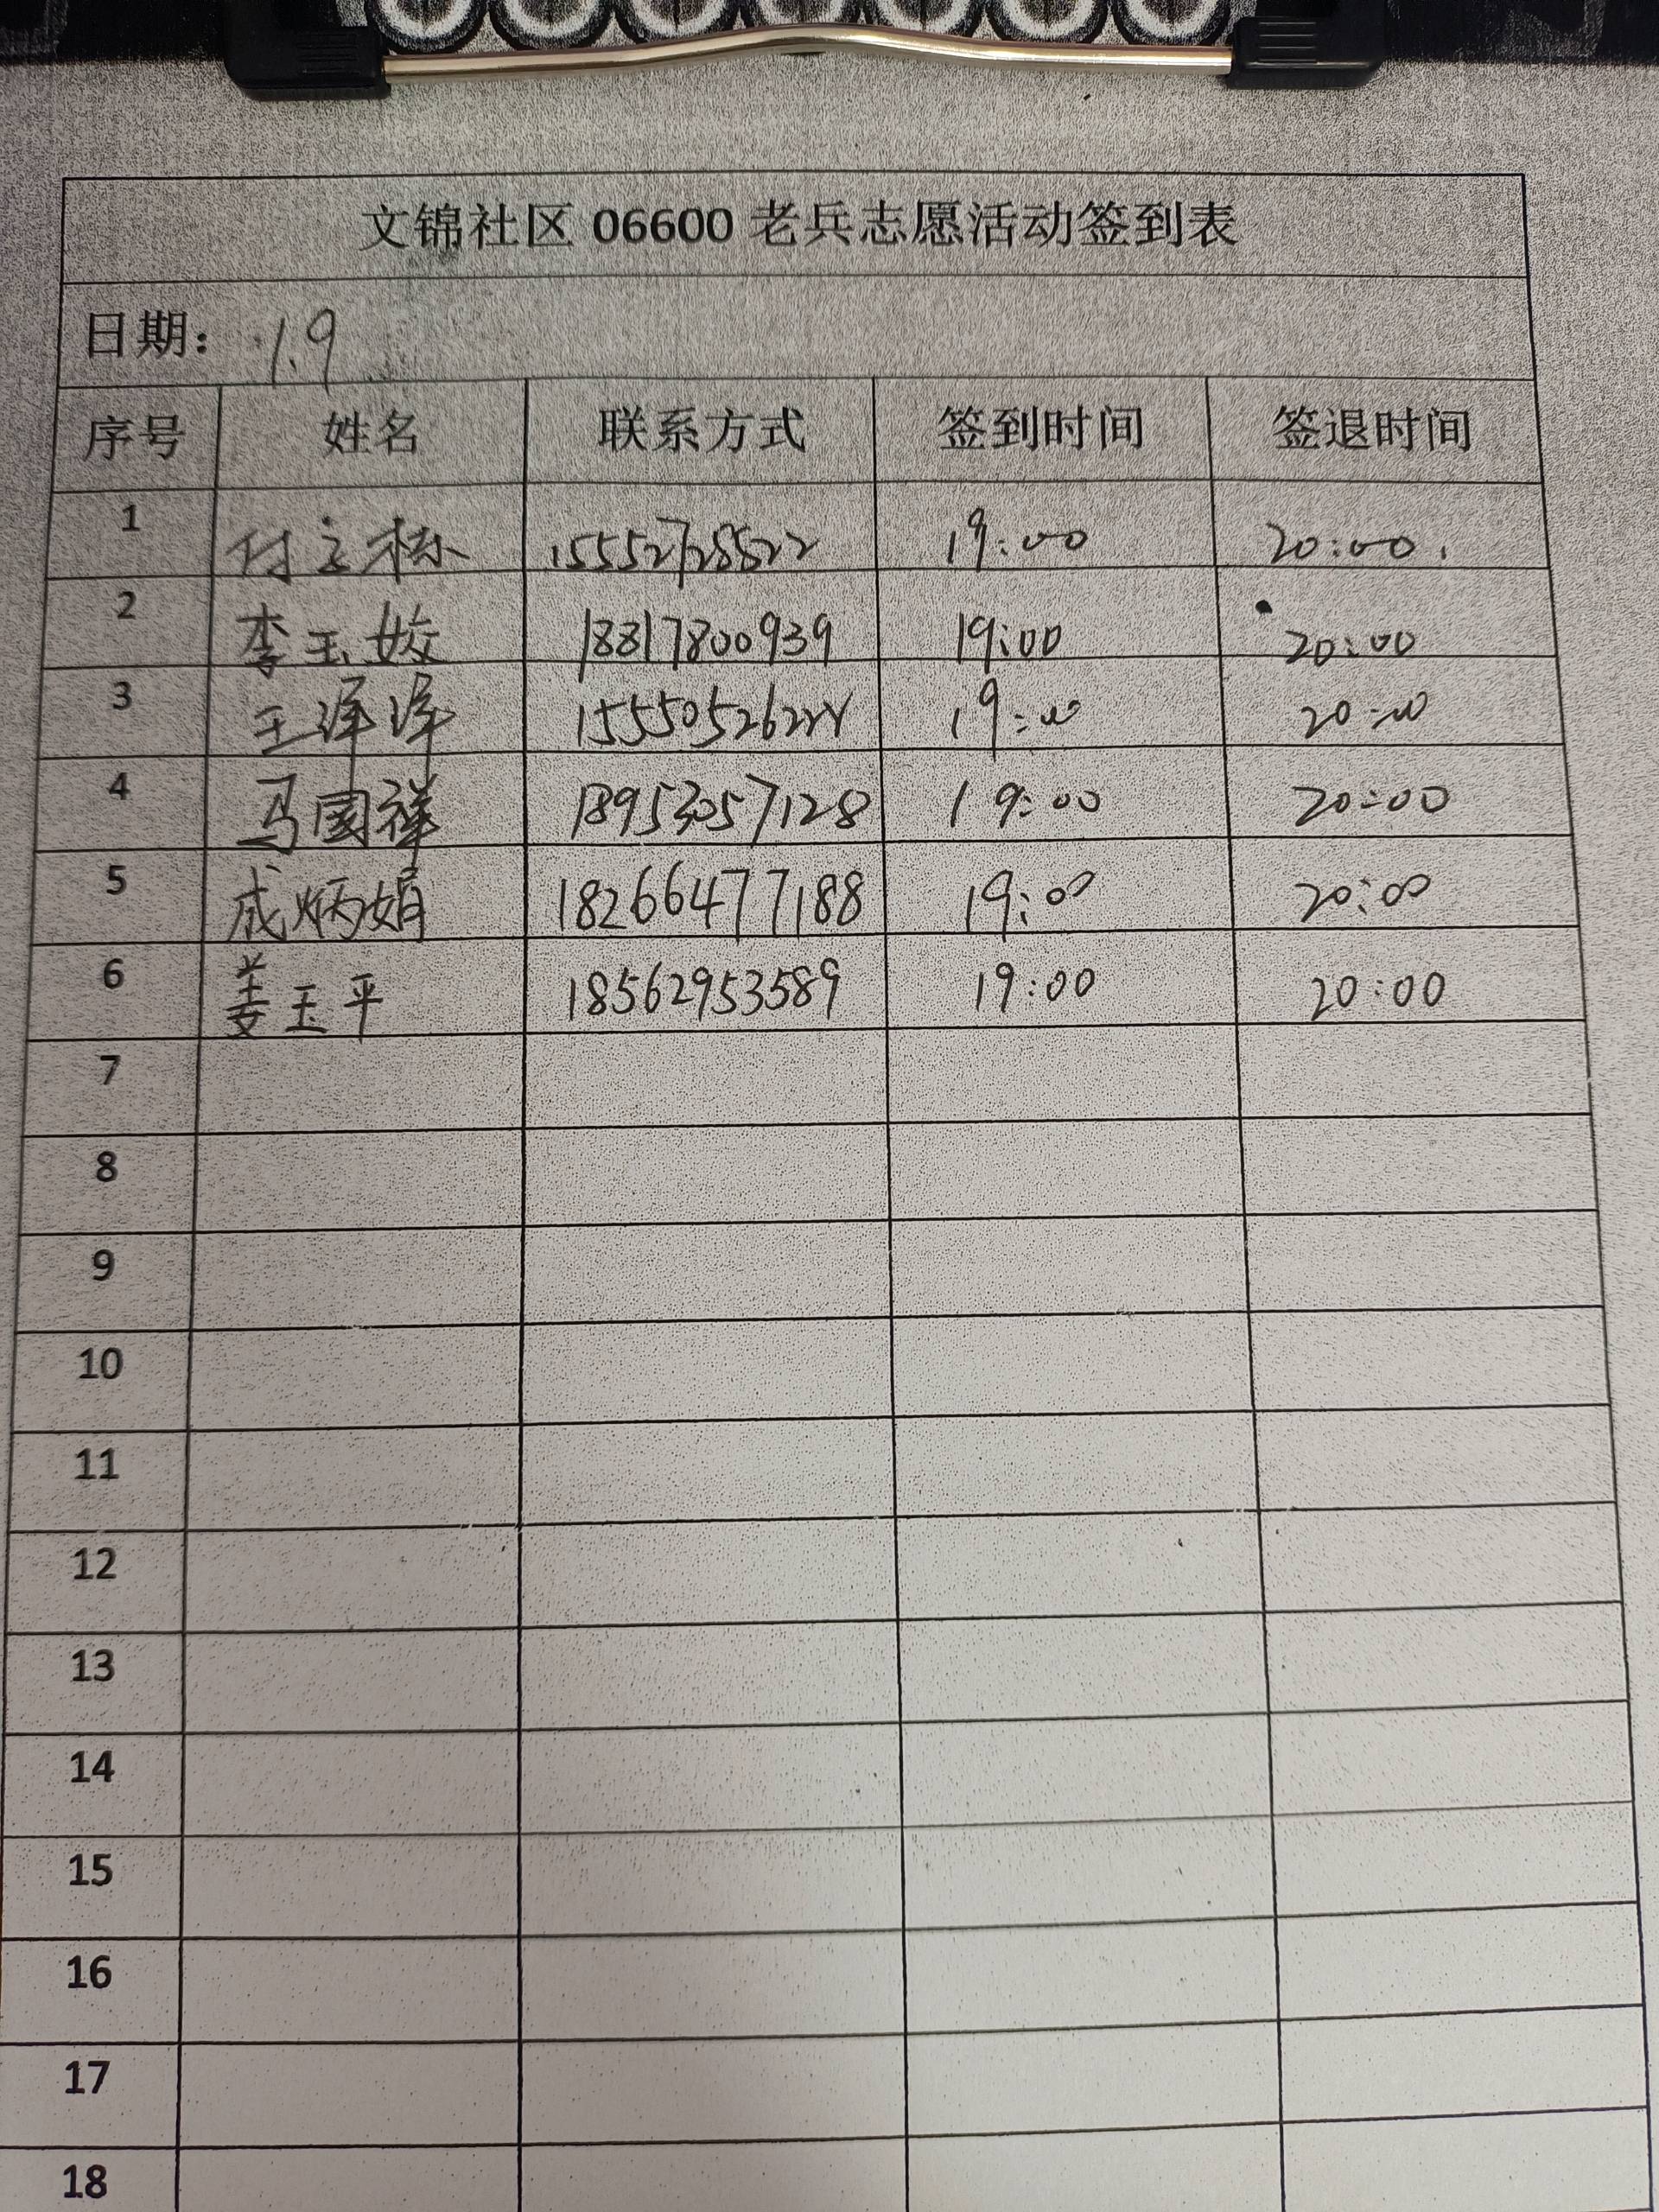 文锦社区 06600 老兵志愿活动签到表
日期： 1.9
序号 姓名 联系方式 签到时间 签退时间
1 付立栋 15552728522 19:00 20:00
2 李玉姣 18817800939 19:00 20:00
3 王泽泽 19:00 20:00
4 马国祥 18953057128 19:00 20:00
5 成炳娟 18266477188 19:00 20:00
6 姜玉平 18562953589 19:00 20:00
7
8
9
10
11
12
13
14
15
16
17
18